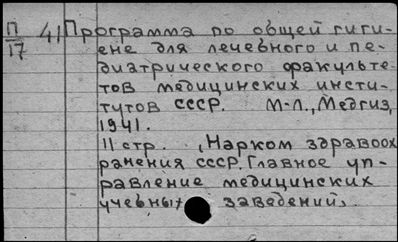 П/17 41 Программа по общей гиги-
ене для лечебного и пе-
диатрического факульте-
тов медицинских инсти-
тутов СССР. М-Л., Медгиз,
1941.
11 стр. , Нарком здравоох
ранения СССР. Главное уп-
равление медицинских
учебных заведений.